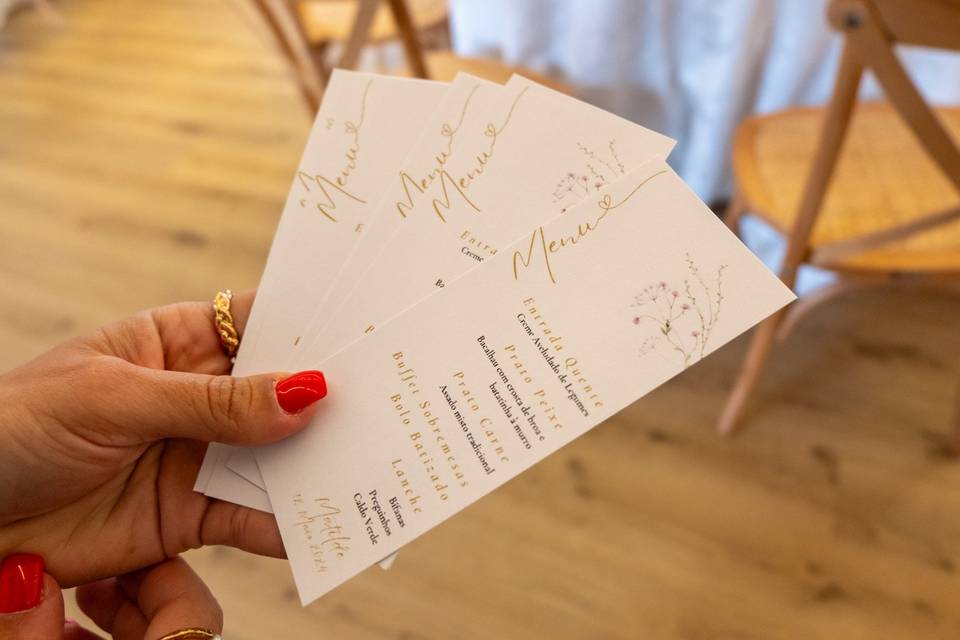 Menu
Entrada Quente
Creme Aveludado de Legumes
Prato Peixe
Bacalhau com crosta de broa e
batatinha à murro
Prato Carne
Assado misto tradicional
Buffet Sobremesas
Bolo Batizado
Lanche
Bifanas
Preguinhos
Caldo Verde
Matilde
12. Maio 2024
Menu
Entra
Creme
Menu
Menu